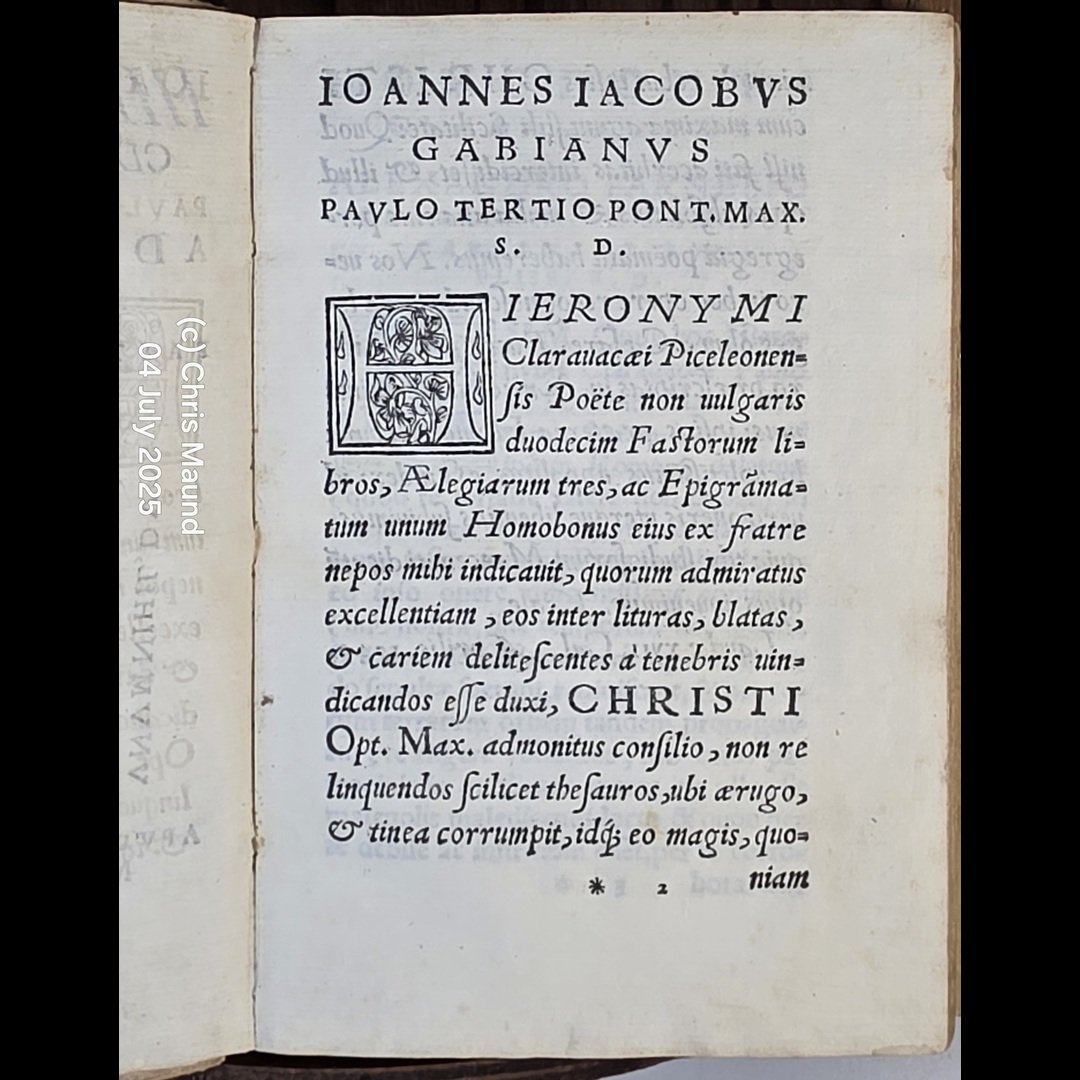 IOANNES IACOBVS
GABIANVS
PAVLO TERTIO PONT. MAX.
S. D.
HIERONYMI
Clarauacæi Piceleonen=
ſis Poëte non uulgaris
duodecim Faſtorum li=
bros, Ælegiarum tres, ac Epigrāma=
tum unum Homobonus eius ex fratre
nepos mihi indicauit, quorum admiratus
excellentiam , eos inter lituras, blatas ,
& cariem deliteſcentes à tenebris uin=
dicandos eſſe duxi, CHRISTI
Opt. Max. admonitus conſilio , non re
linquendos ſcilicet theſauros, ubi ærugo,
& tinea corrumpit, idq́; eo magis, quo=
niam
* 2
(c) Chris Maund
04 July 2025